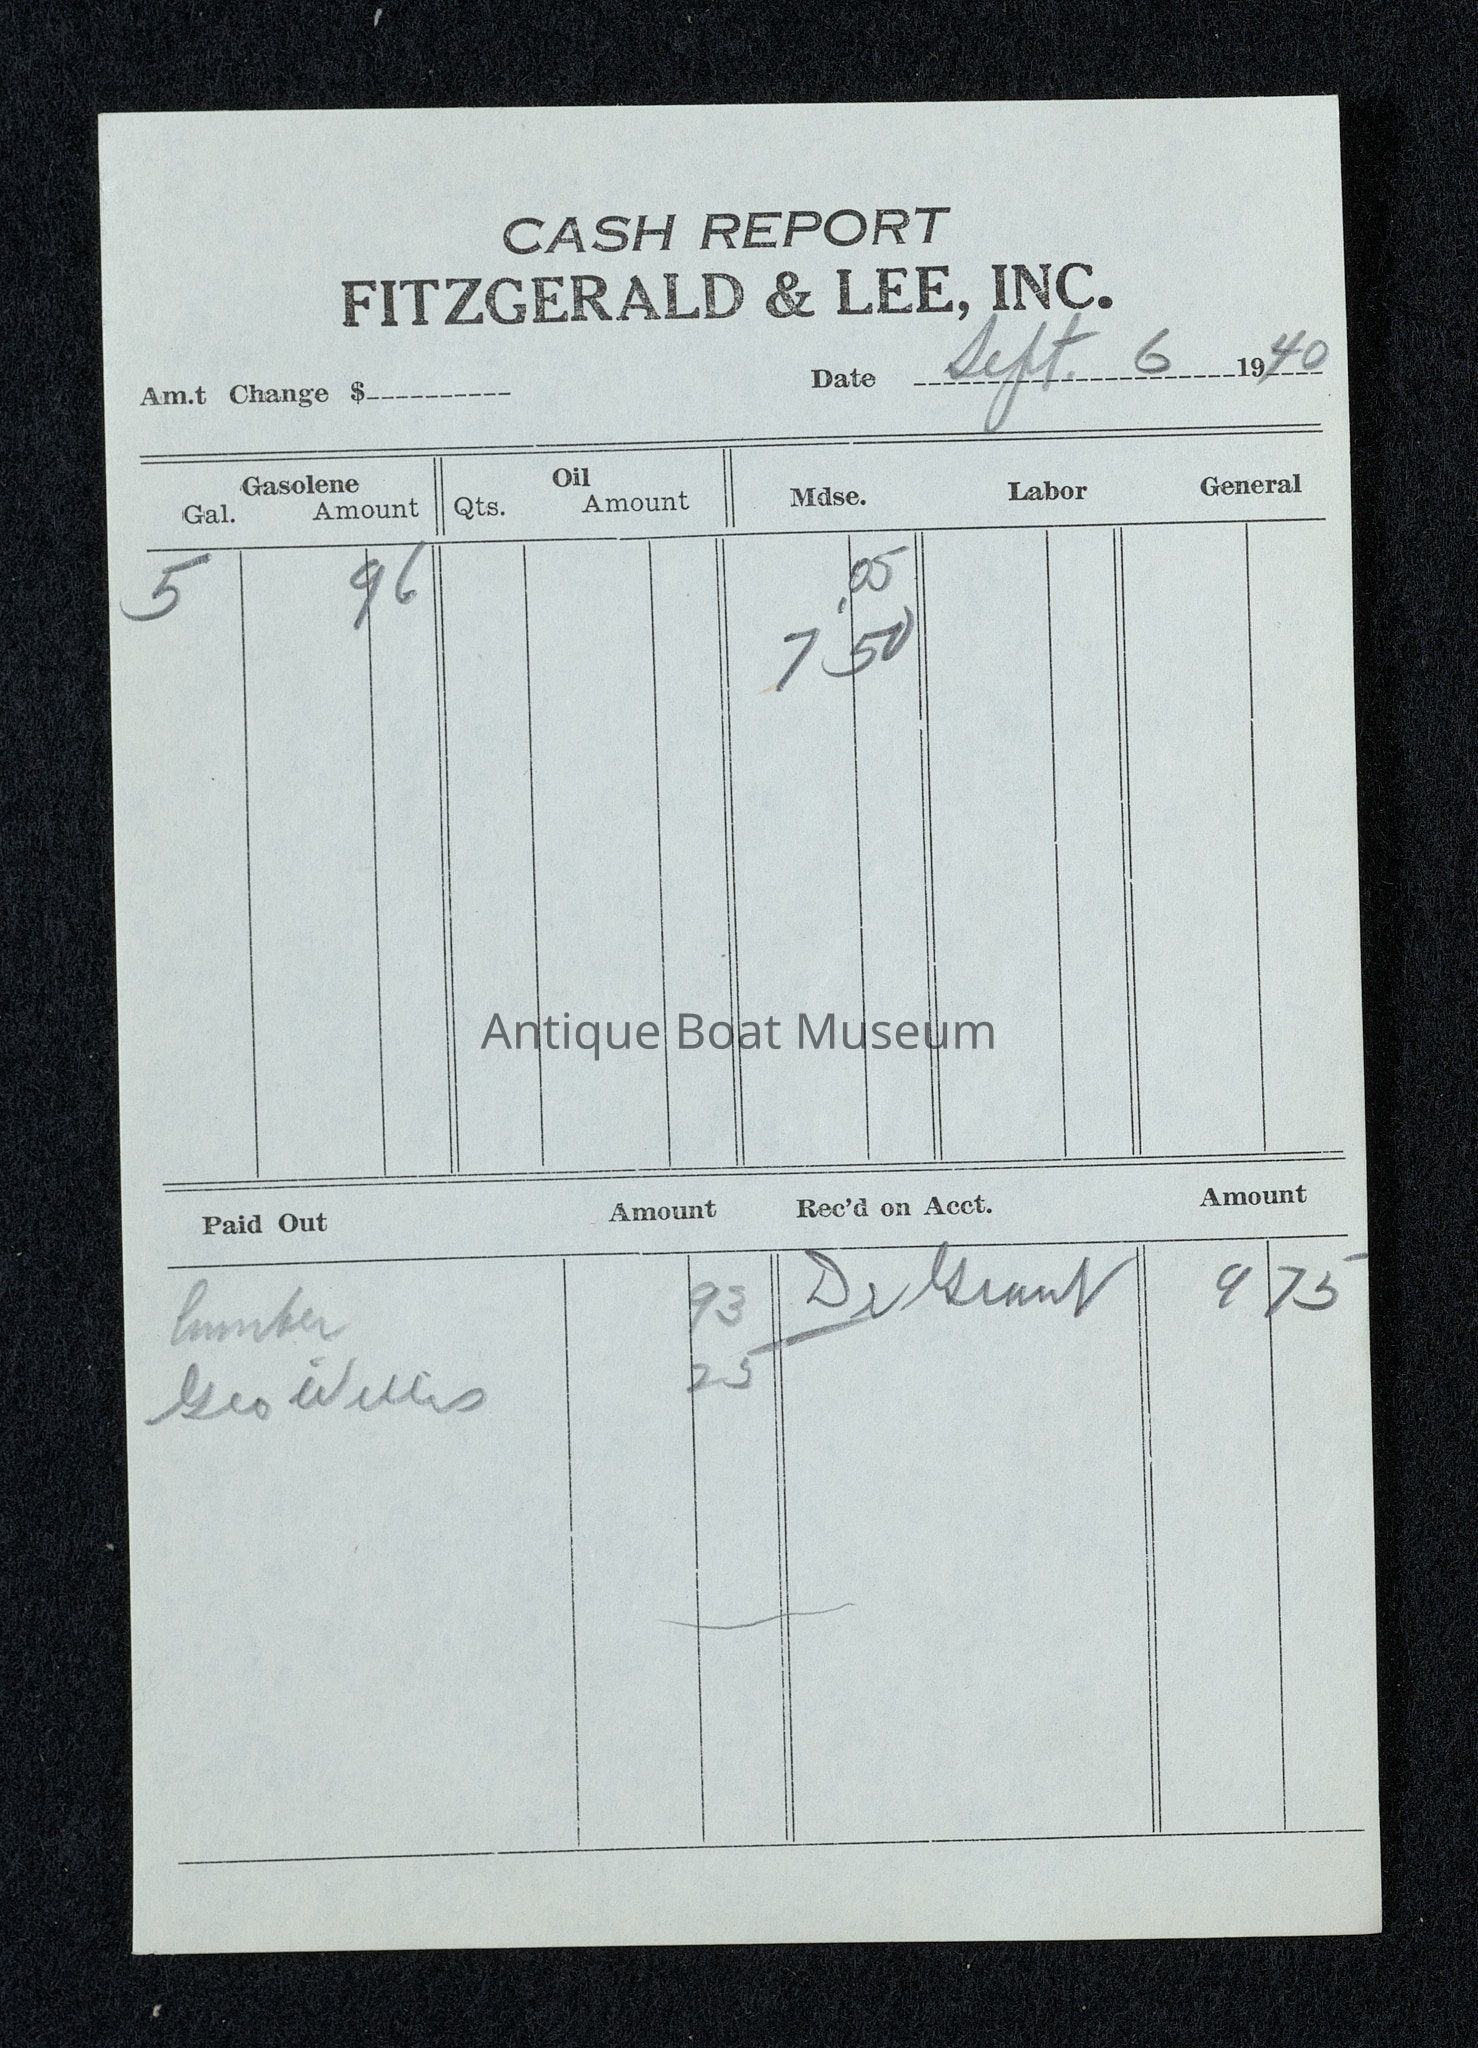 CASH REPORT
FITZGERALD & LEE, INC.
Am.t Change $ Date Sept. 6 1940
Gasolene Oil Mdse. Labor General
Gal. Amount Qts. Amount
5 96 .05
7 50
Antique Boat Museum
Paid Out Amount Rec'd on Acct. Amount
Lumber 93 Dr Grant 9 75
Geo Willis 25